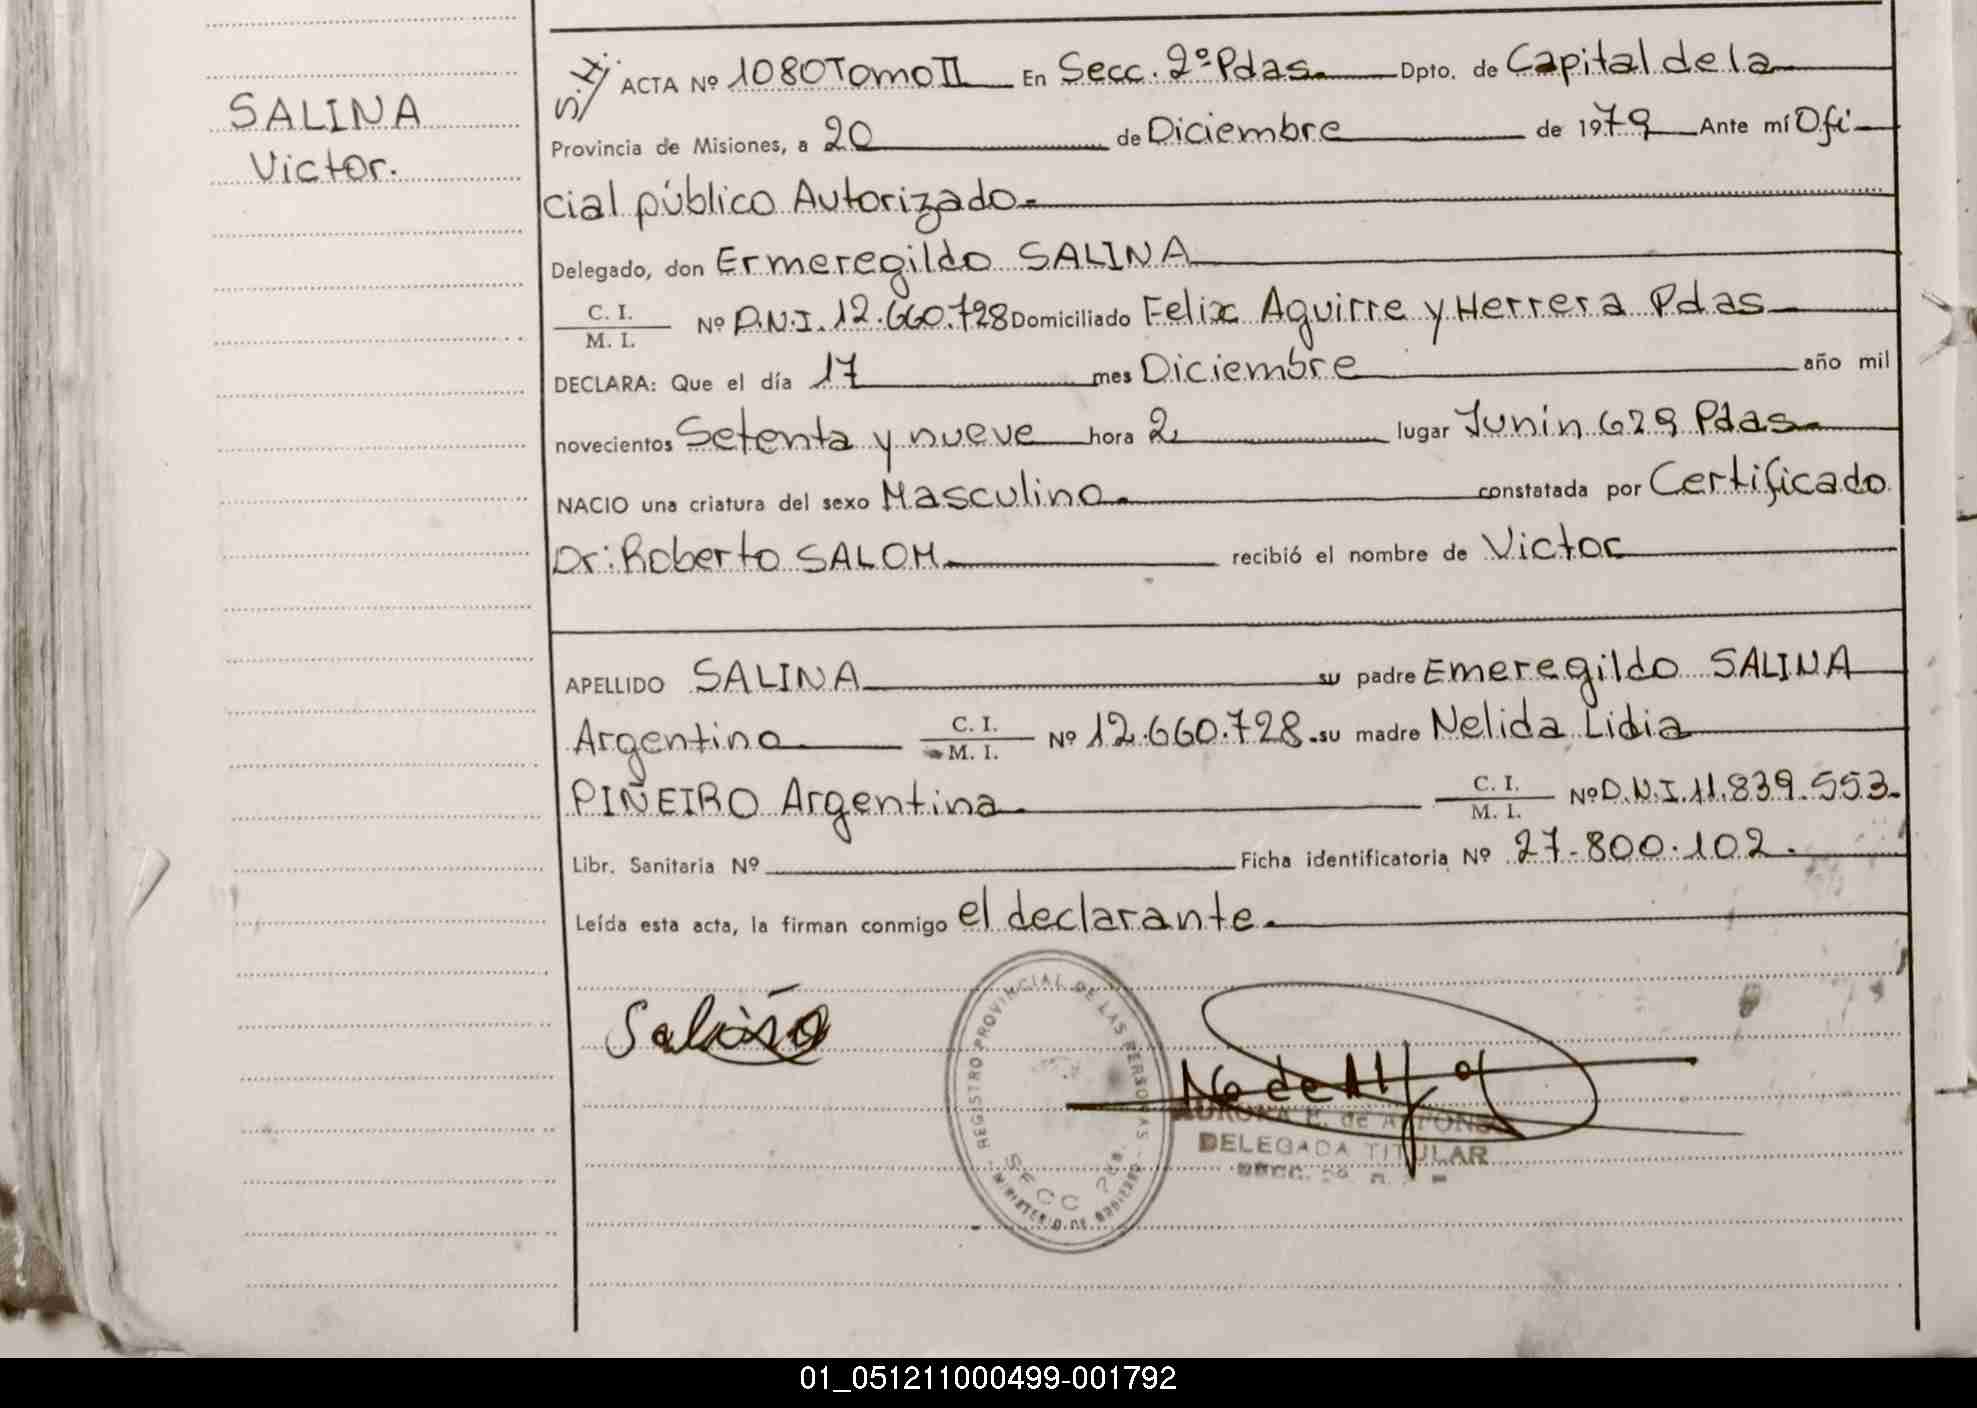 SALINA
Victor.
S./I.
ACTA Nº 1080 Tomo II En Secc. 2º Pdas. Dpto. de Capital de la
Provincia de Misiones, a 20 de Diciembre de 1979 Ante mí Ofi
cial público Autorizado.
Delegado, don Ermeregildo SALINA
C. I.
M. I. Nº D.N.I. 12.660.728 Domiciliado Felix Aguirre y Herrera Pdas
DECLARA: Que el día 17 mes Diciembre año mil
novecientos Setenta y nueve hora 2 lugar Junin 629 Pdas.
NACIO una criatura del sexo Masculino. constatada por Certificado
Dr: Roberto SALOM. recibió el nombre de Victor
APELLIDO SALINA su padre Emeregildo SALINA
Argentino C. I. M. I. Nº 12.660.728. su madre Nelida Lidia
PIÑEIRO Argentina. C. I. M. I. Nº D.N.I. 11.839.553.
Libr. Sanitaria Nº Ficha identificatoria Nº 27-800.102.
Leída esta acta, la firman conmigo el declarante.
REGISTRO PROVINCIAL DE LAS PERSONAS
SECC
MINISTERIO DE GOBIERNO
AURORA E. de ALFONSO
DELEGADA TITULAR
SECC. 2º
01_051211000499-001792